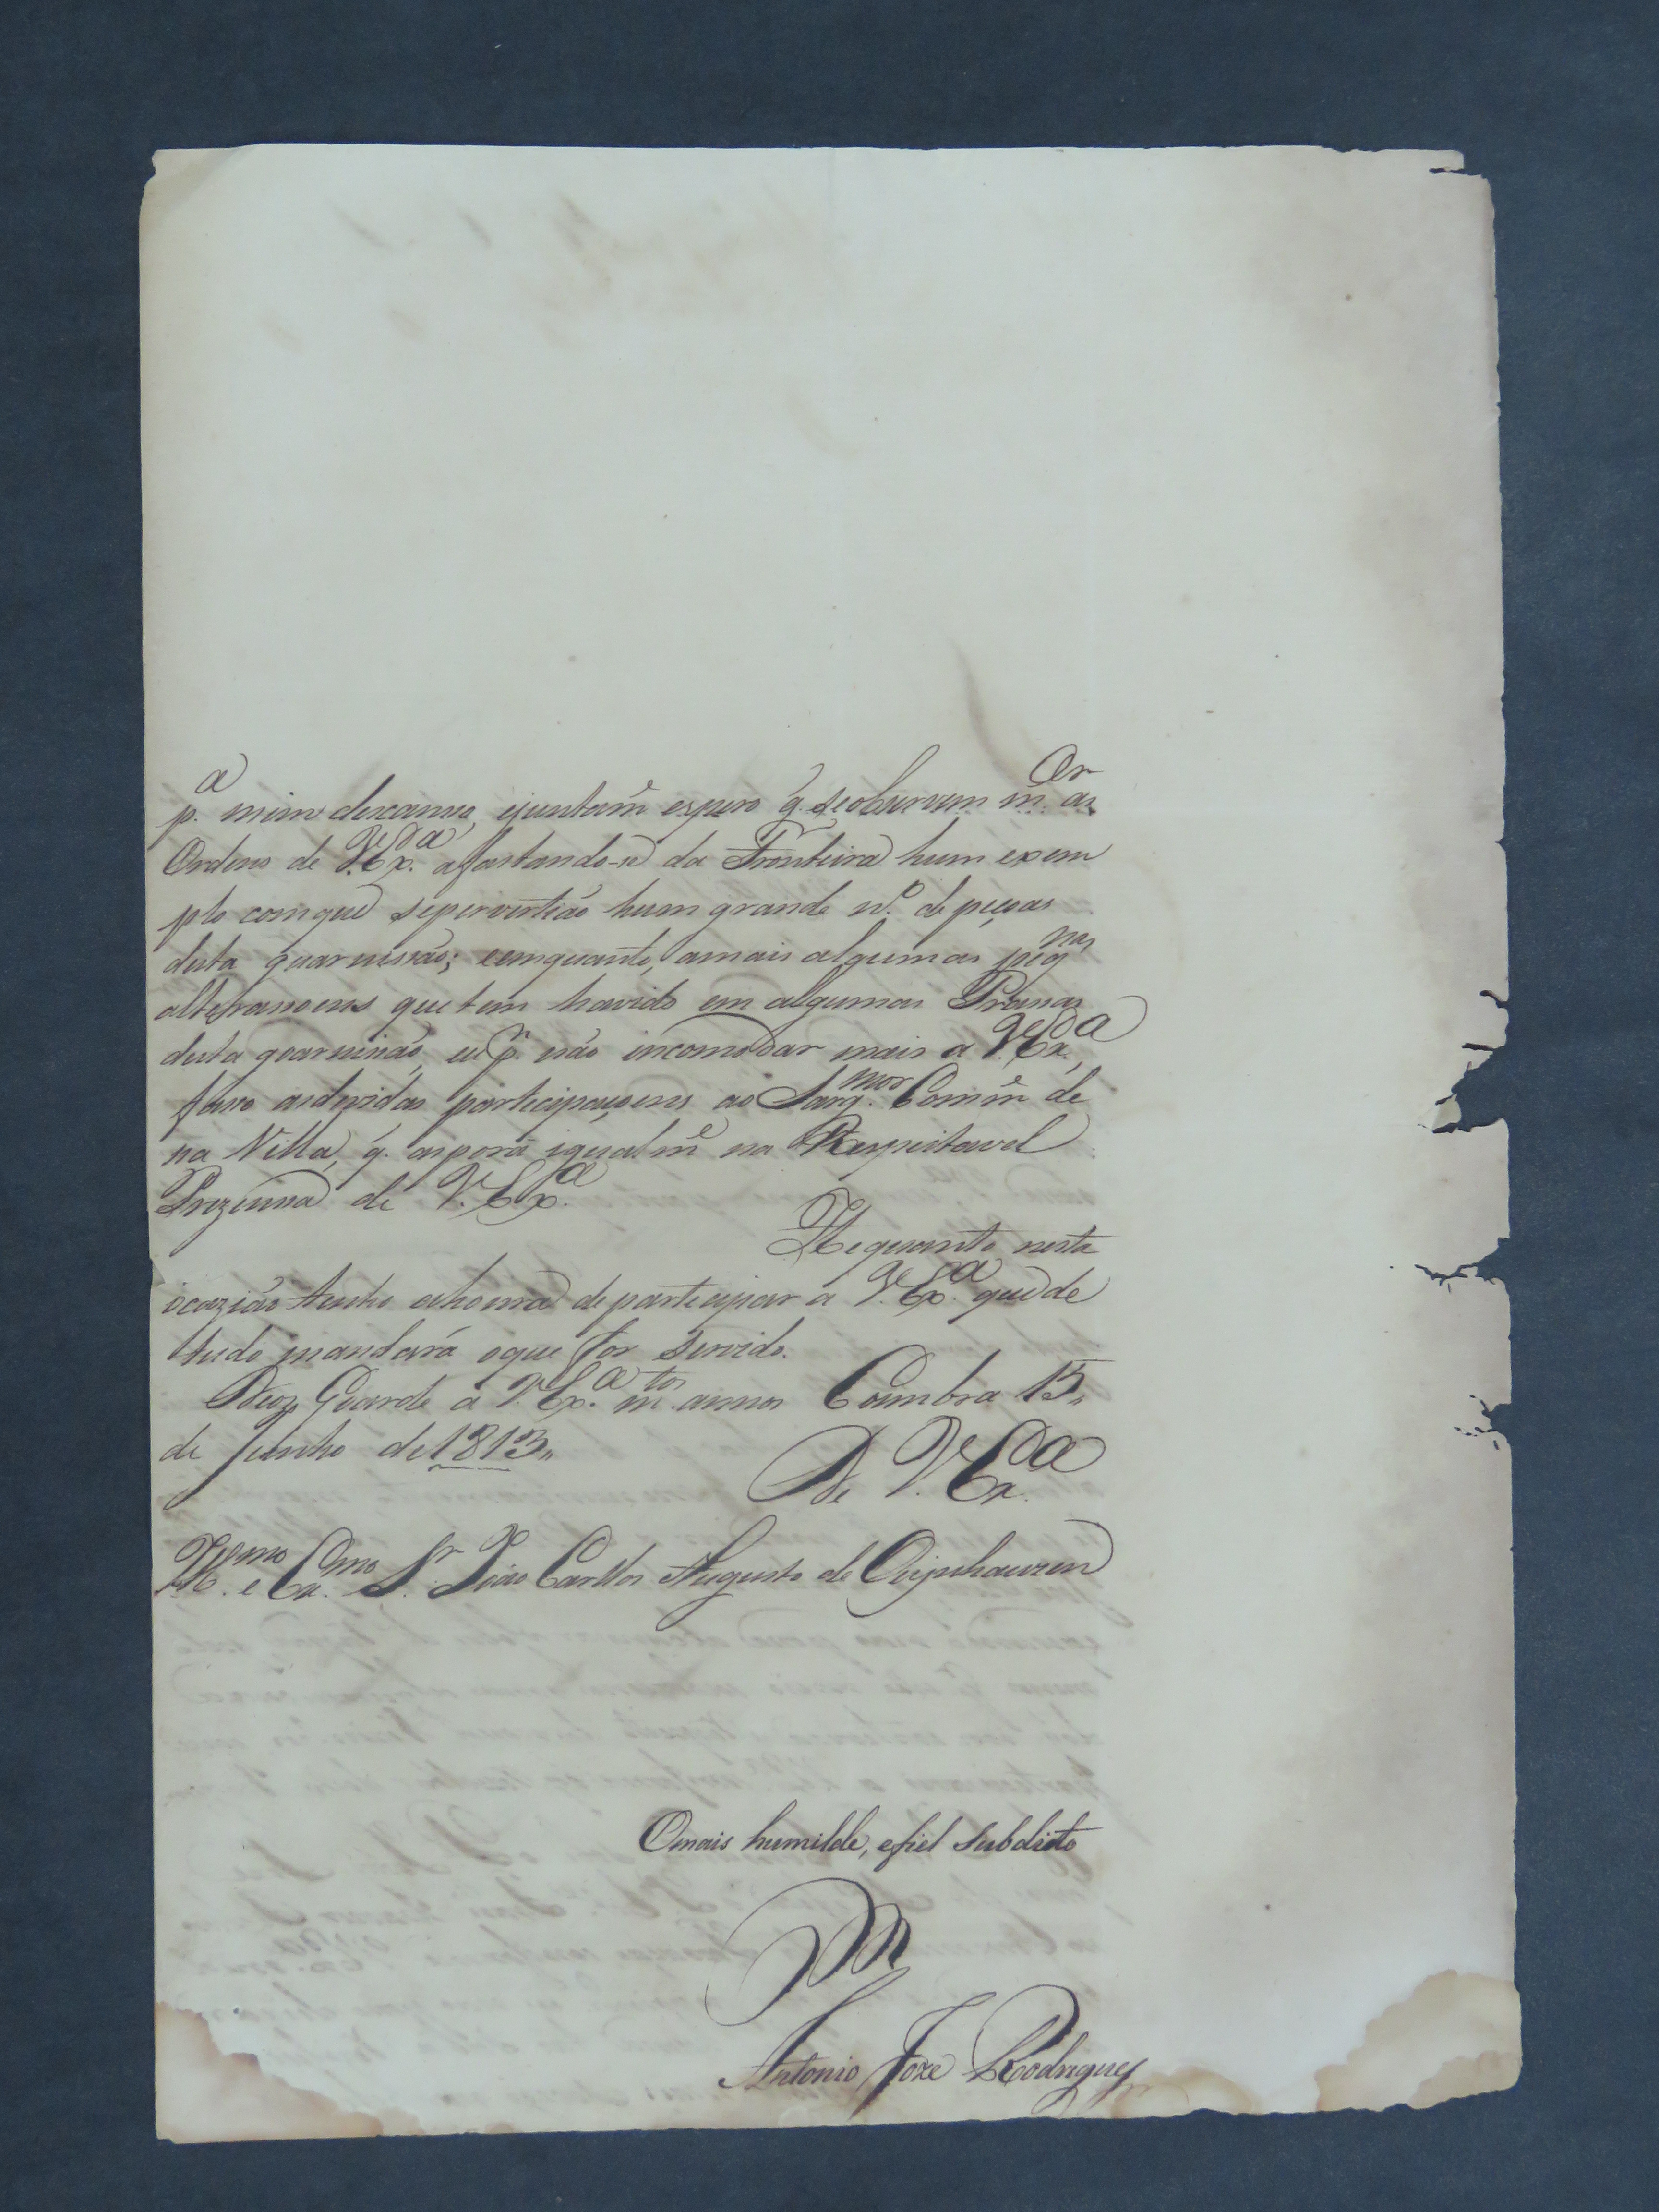 p.ª mim descanso, ejuntam.e espero q. seobservem m. as
Ordens de V.Ex.ª afastando-se da Fronteira hum exem
plo comque sepervertião hum grande n.º de pessas
desta guarnissão; eemquanto, amais algumas peq.nas
alterasoens quetem havido em algumas Prasas
desta goarnisão, eu p.r não incomodar mais a V.Ex.ª,
faso asdevidas participasoens ao Sarg.mor Comm.e de
na Villa, q. asporá igualm.e na Respeitavel
Prezensa de V.Ex.ª
He quanto nesta
ocazião tenho ahonra departicipar a V.Ex.ª quede
tudo mandará oque for Servido.
Deoz Goarde a V.Ex.ª m.tos annos Coimbra 15,,
de Junho de 1813,,
De V.Ex.ª
Ill.mo e Ex.mo S.r João Carllos Augusto de Oeijnhauzen
Omais humilde, efiel Subdieto
Antonio Joze Rodrigues